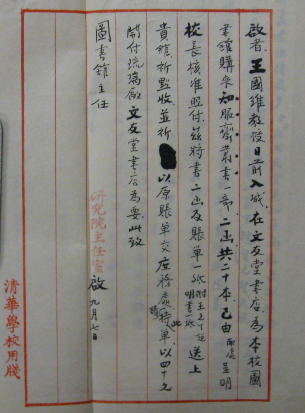 啟者王國維教授日前入城在文友堂書店為本校圖
書館購來知服齋叢書一部二函共二十本已由 敝處呈明
校長核准照付茲將書二函及賬單一紙 附王先生 明書一紙 送上
貴館祈點收並祈 以原賬單交庶務處 憑單以四十元
開付琉璃廠文友堂書店為要此致
圖書館主任
研究院主任室 啟 九月七日
清華學校用牋